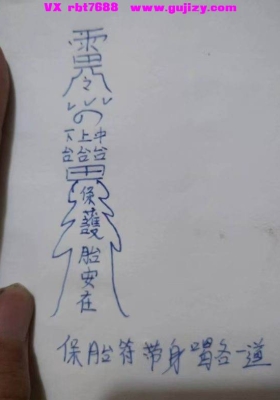 VX rbt7688 www.gujizy.com
下台 上台 中台
保護胎安在
保胎符带身喝各一道